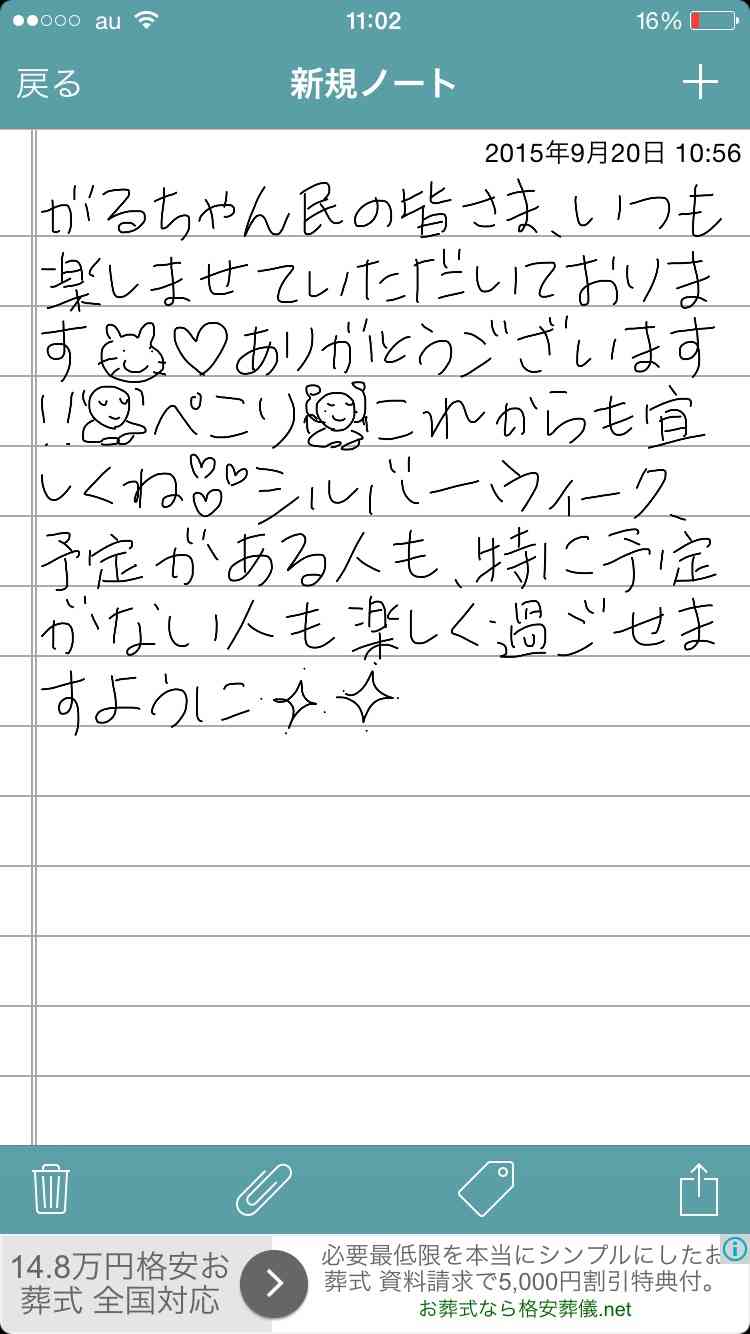 au 11:02 16%
戻る 新規ノート
2015年9月20日 10:56
がるちゃん民の皆さま、いつも
楽しませていただいておりま
す♡ありがとうございます
!!ぺこりこれからも宜
しくね♡♡♡シルバーウィーク、
予定がある人も、特に予定
がない人も楽しく過ごせま
すように
14.8万円格安お
葬式 全国対応
必要最低限を本当にシンプルにしたお
葬式 資料請求で5,000円割引特典付。
お葬式なら格安葬儀.net